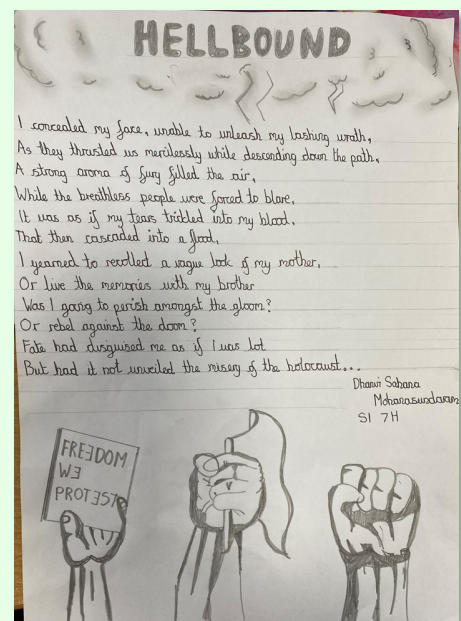 HELLBOUND
I concealed my face, unable to unleash my lashing wrath,
As they thrusted us mercilessly while descending down the path,
A strong aroma of fury filled the air,
While the breathless people were forced to blare,
It was as if my tears trickled into my blood,
That then cascaded into a flood,
I yearned to recollect a vague look of my mother,
Or live the memories with my brother
Was I going to perish amongst the gloom?
Or rebel against the doom?
Fate had disguised me as if I was lot
But had it not unveiled the misery of the holocaust...
Dhanvi Sahana
Mohanasundaram
S1 7H
FREEDOM
WE
PROTEST